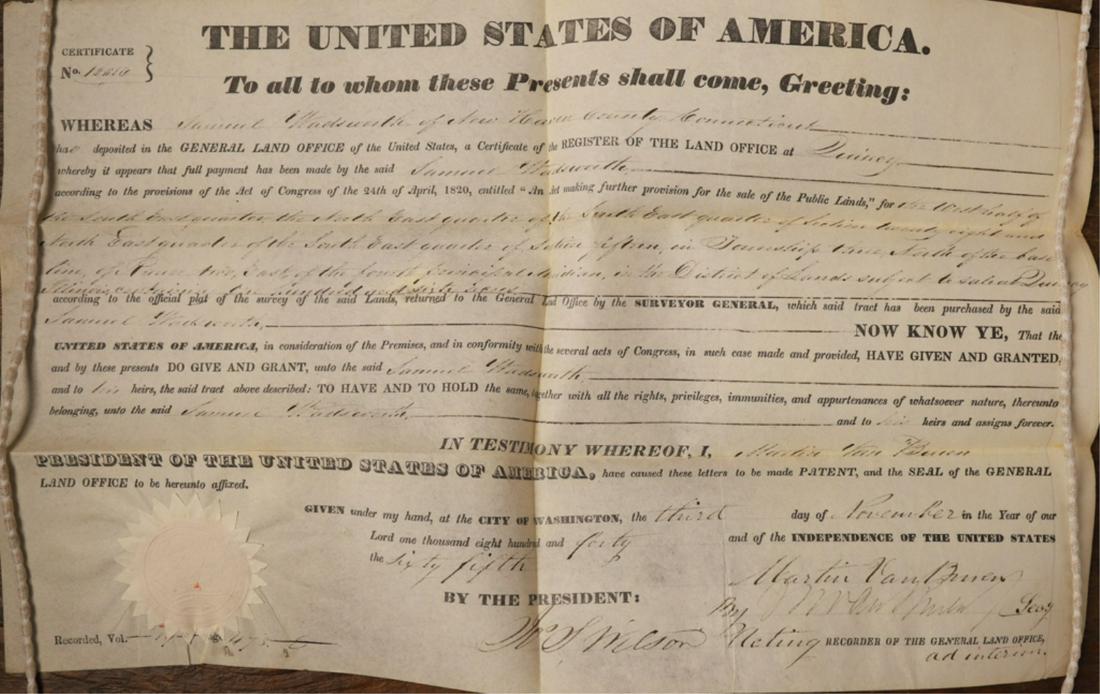 THE UNITED STATES OF AMERICA.
CERTIFICATE
No.
To all to whom these Presents shall come, Greeting:
WHEREAS Samuel Wadsworth of New Haven County, Connecticut
has deposited in the GENERAL LAND OFFICE of the United States, a Certificate of the REGISTER OF THE LAND OFFICE at Quincy
whereby it appears that full payment has been made by the said Samuel Wadsworth
according to the provisions of the Act of Congress of the 24th of April, 1820, entitled "An Act making further provision for the sale of the Public Lands," for the West half of
the South East quarter the North East quarter of the South East quarter of Section twenty eight and
North East quarter of the South East quarter of Section fifteen, in Township three, North of the base
line, of Range two, East, of the fourth principal Meridian, in the District of Lands subject to sale at Quincy
Illinois containing one hundred and sixty acres
according to the official plat of the survey of the said Lands, returned to the General Land Office by the SURVEYOR GENERAL, which said tract has been purchased by the said
Samuel Wadsworth, NOW KNOW YE, That the
UNITED STATES OF AMERICA, in consideration of the Premises, and in conformity with the several acts of Congress, in such case made and provided, HAVE GIVEN AND GRANTED,
and by these presents DO GIVE AND GRANT, unto the said Samuel Wadsworth,
and to his heirs, the said tract above described: TO HAVE AND TO HOLD the same, together with all the rights, privileges, immunities, and appurtenances of whatsoever nature, thereunto
belonging, unto the said Samuel Wadsworth, and to his heirs and assigns forever.
IN TESTIMONY WHEREOF, I, Martin Van Buren
PRESIDENT OF THE UNITED STATES OF AMERICA, have caused these letters to be made PATENT, and the SEAL of the GENERAL
LAND OFFICE to be hereunto affixed.
GIVEN under my hand, at the CITY OF WASHINGTON, the third day of November in the Year of our
Lord one thousand eight hundred and forty and of the INDEPENDENCE OF THE UNITED STATES
the Sixty fifth
BY THE PRESIDENT: Martin Van Buren
By Secy
Recorded, Vol. Wilson Acting RECORDER OF THE GENERAL LAND OFFICE,
ad interim.